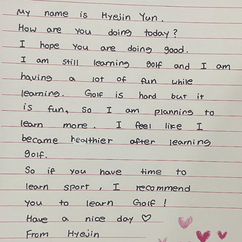 My name is Hyejin Yun.
How are you doing today?
I hope you are doing good.
I am still learning golf and I am
having a lot of fun while
learning. Golf is hard but it
is fun, so I am planning to
learn more. I feel like I
became healthier after learning
golf.
So if you have time to
learn sport, I recommend
you to learn Golf!
Have a nice day ♡
From Hyejin